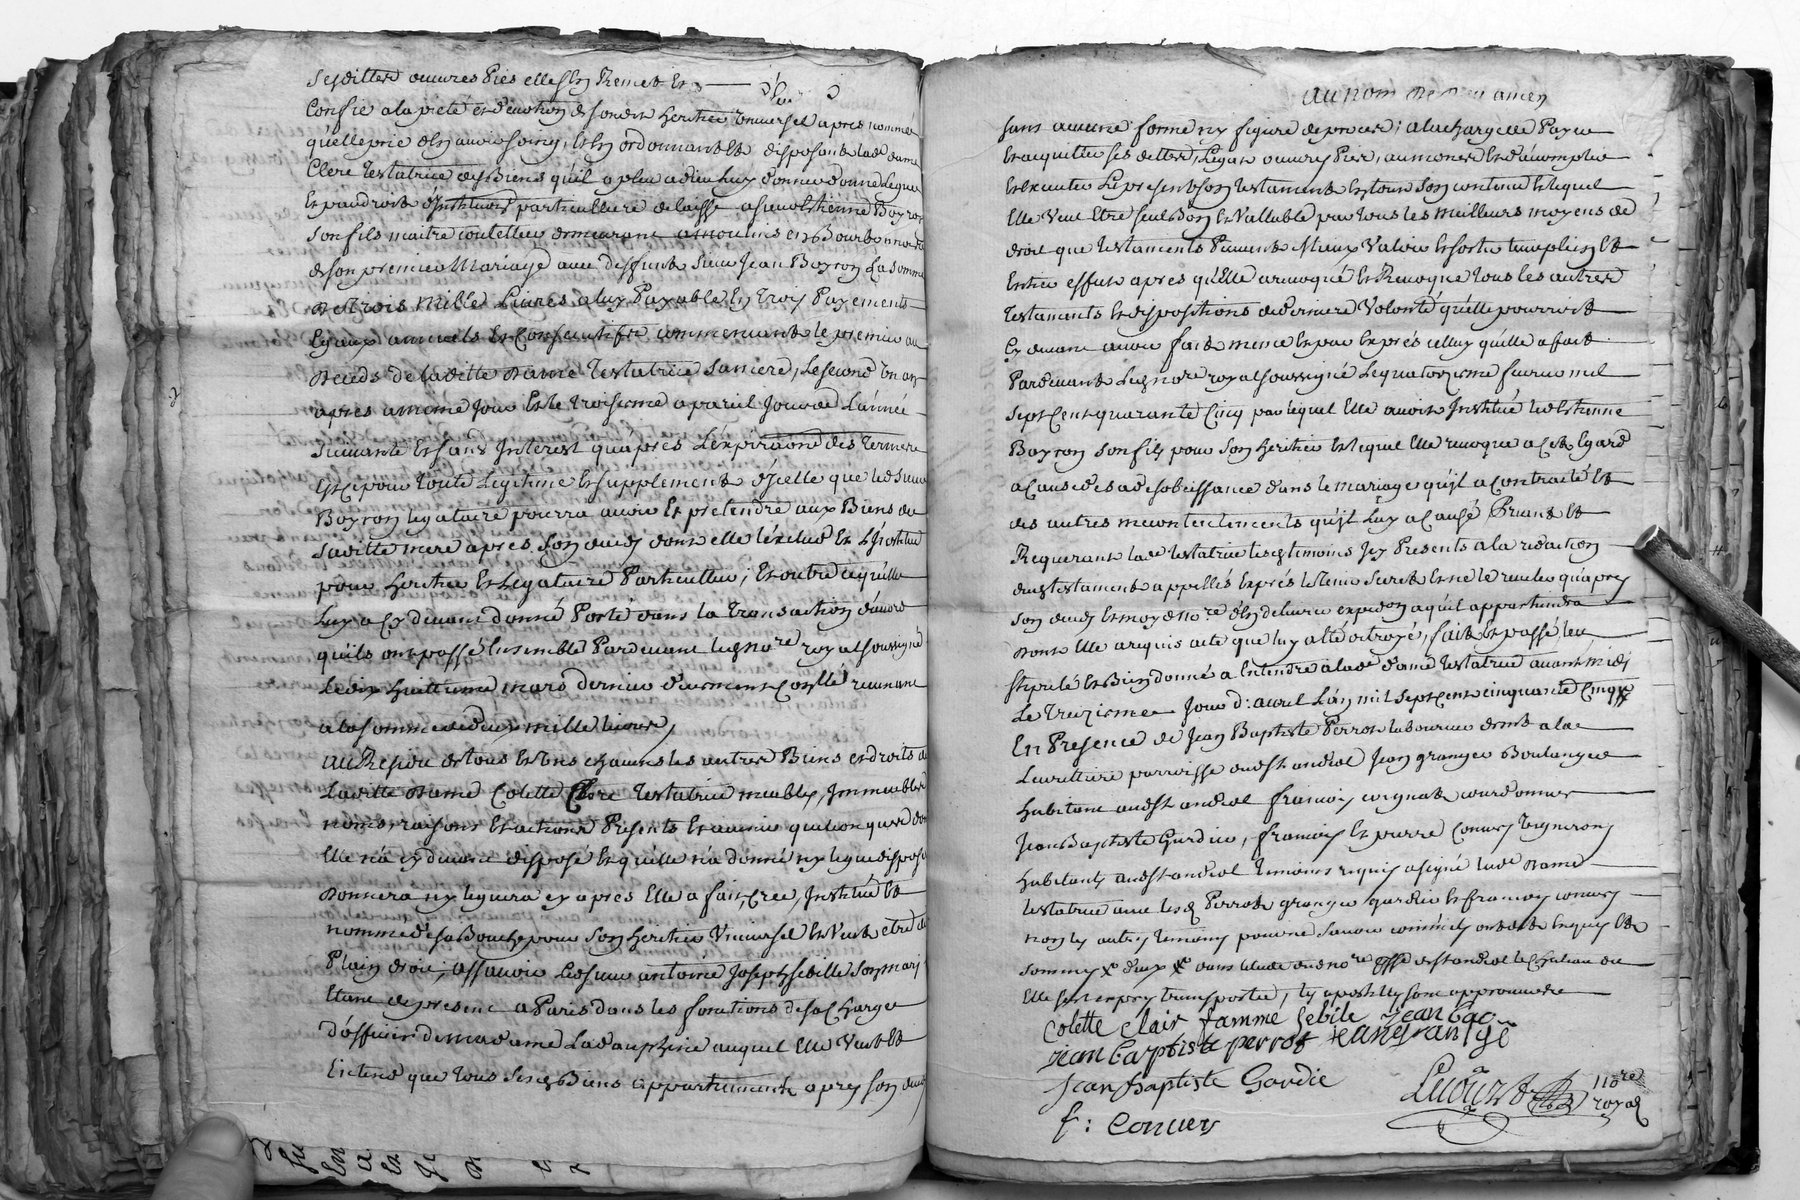 sesdittes œuvres Pies elle s'En Remet Et
Confie a la pieté et devotion de son dit heritier universel apres nommé
quelle prie d'En avoir soing, Et En ordonnant Et disposant lade dame
Clere Testatrice des Biens qu'il a pleu a dieu luy donner donne Legue
Et par droit d'Institution particulliere delaisse a sieur Estienne Boyron
son fils maitre coutellier demeurant a moulins en Bourbonnois
de son premier Mariage avec deffunt sieur Jean Boyron La somme
de trois mille Livres a luy Payable En trois Payements
Egaux annuels Et Consecutifs commencant le premier au
deceds de laditte dame Testatrice sa mere, Le second Un an
apres a meme jour Et le troisieme a pareil jour de L'année
suivante Et sans Interest qu'apres L'expiraõn des termes
Et Ce pour toute Legitime Et supplement d'jcelle que led sieur
Boyron legataire pourra avoir Et pretendre aux Biens de
saditte mere apres son deceds dont elle l'exclud Et L'Jnstitue
pour heritier Et Legataire Particullier; Et outre ce qu'elle
Luy a Cy devant donné Porté dans la transaction d'accord
qu'ils ont passé Ensemble Pardevant le no.re royal soussigné
Le dix huittieme mars dernier duement Collé revenant
a la somme de deux mille livres
Au Residu de tous Et Uns chacuns les autres Biens et droits de
Laditte dame Colette Clere Testatrice meubles, Jmmeubles
noms, raisons Et actions Presents Et avenir quelconques dont
Elle n'a cy devant disposé Et qu'elle n'a donné ny legué disposé
Donnera ny leguera cy apres Elle a fait, Crée, Jnstitué Et
nommé de sa Bouche pour Son heritier Universel Et Veut etre de
Plain droit, assavoir Led sieur antoine Joseph sebille Son mari
Etant de present a Paris dans les fonctions de sa Charge
d'officier de madame La dauphine auquel Elle Veut Et
Entend que tous Sesd Biens appartiennent apres son deceds
sans aucune forme ny figure de proces; a la charge de Payer
Et acquitter ses dettes, Legats œuvres Pies, aumones Et d'accomplir
Et Executer Le present Son testament En tout Son contenu Et lequel
Elle Veut Etre seul Bon Et Vallable par tous les meilleurs moyens de
droit que testaments Peuvent Mieux Valoir Et sortir
Entier effect apres qu'Elle a revoqué Et Revoque tous les autres
testaments Et dispositions de derniere Volonté qu'elle pourroit
Cy devant avoir fait meme Et par Exprés celluy qu'elle a fait
Pardevant Le no.re royal soussigné Le quatorzieme fevrier mil
sept Cent quarante Cinq par lequel Elle avoit Jnstitué led Estienne
Boyron son fils pour Son heritier Et lequel Elle revoque a Cet Egard
a Cause de sa desobeissance dans le mariage qu'jl a Contracté Et
des autres mecontentements qu'jl Luy a Causé Priant Et
Requerant lade testatrice les temoins Jcy Presents a la redaction
du testament appellés Exprés le tenir secret Et ne le reveler qu'apres
son deceds Et moy d no.re d'En delivrer expedon a qu'il appartiendra
Dont Elle a requis acte que luy a Eté octroyé, fait Et passé leu
stipulé Et Bien donné a Entendre a lade dame testatrice avant midi
Le treizieme Jour d'avril L'an mil sept cent cinquante Cinq
En Presence de Jean Baptiste Perrot laboureur demt a la
parroisse dud st andéol Jean granger Boulanger
habitant aud st andéol francois cordonnier
Jean Baptiste Gardier, francois Et pierre Convers Vignerons
habitants aud st andéol temoins requis a signé lade dame
testatrice avec lesd Perrot granger gardier Et francois convers
non les autres temoins pour ne savoir comme ils ont dit Enquis Et
sommés dans letude dud no.re de st andéol le chateau ou
Elle s'est expres transportée, les apostilles sont approuvées
Colette clair famme sebile Jean Bap
jean baptiste perrot jean granige
jean baptiste Gardie
f: Convers
no.re
royal